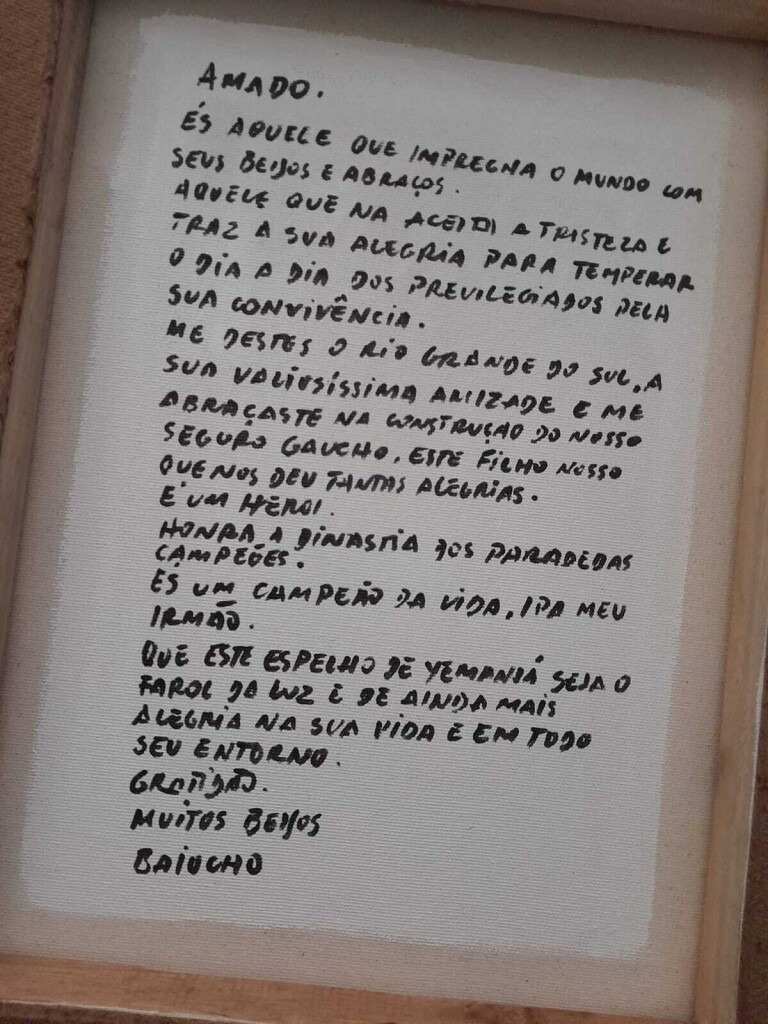 AMADO.
ÉS AQUELE QUE IMPREGNA O MUNDO COM
SEUS BEIJOS E ABRAÇOS.
AQUELE QUE NA ACEITA A TRISTEZA E
TRAZ A SUA ALEGRIA PARA TEMPERAR
O DIA A DIA DOS PREVILEGIADOS PELA
SUA CONVIVÊNCIA.
ME DESTES O RIO GRANDE DO SUL, A
SUA VALIOSÍSSIMA AMIZADE E ME
ABRAÇASTE NA CONSTRUÇÃO DO NOSSO
SEGURO GAUCHO, ESTE FILHO NOSSO
QUE NOS DEU TANTAS ALEGRIAS.
E' UM HEROI.
HONRA A DINASTIA DOS PARADEDAS
CAMPEÕES.
ES UM CAMPEÃO DA VIDA, IPA MEU
IRMÃO.
QUE ESTE ESPELHO DE YEMANJÁ SEJA O
FAROL DA LUZ E DE AINDA MAIS
ALEGRIA NA SUA VIDA E EM TODO
SEU ENTORNO.
GRATIDÃO.
MUITOS BEIJOS
BAIUCHO